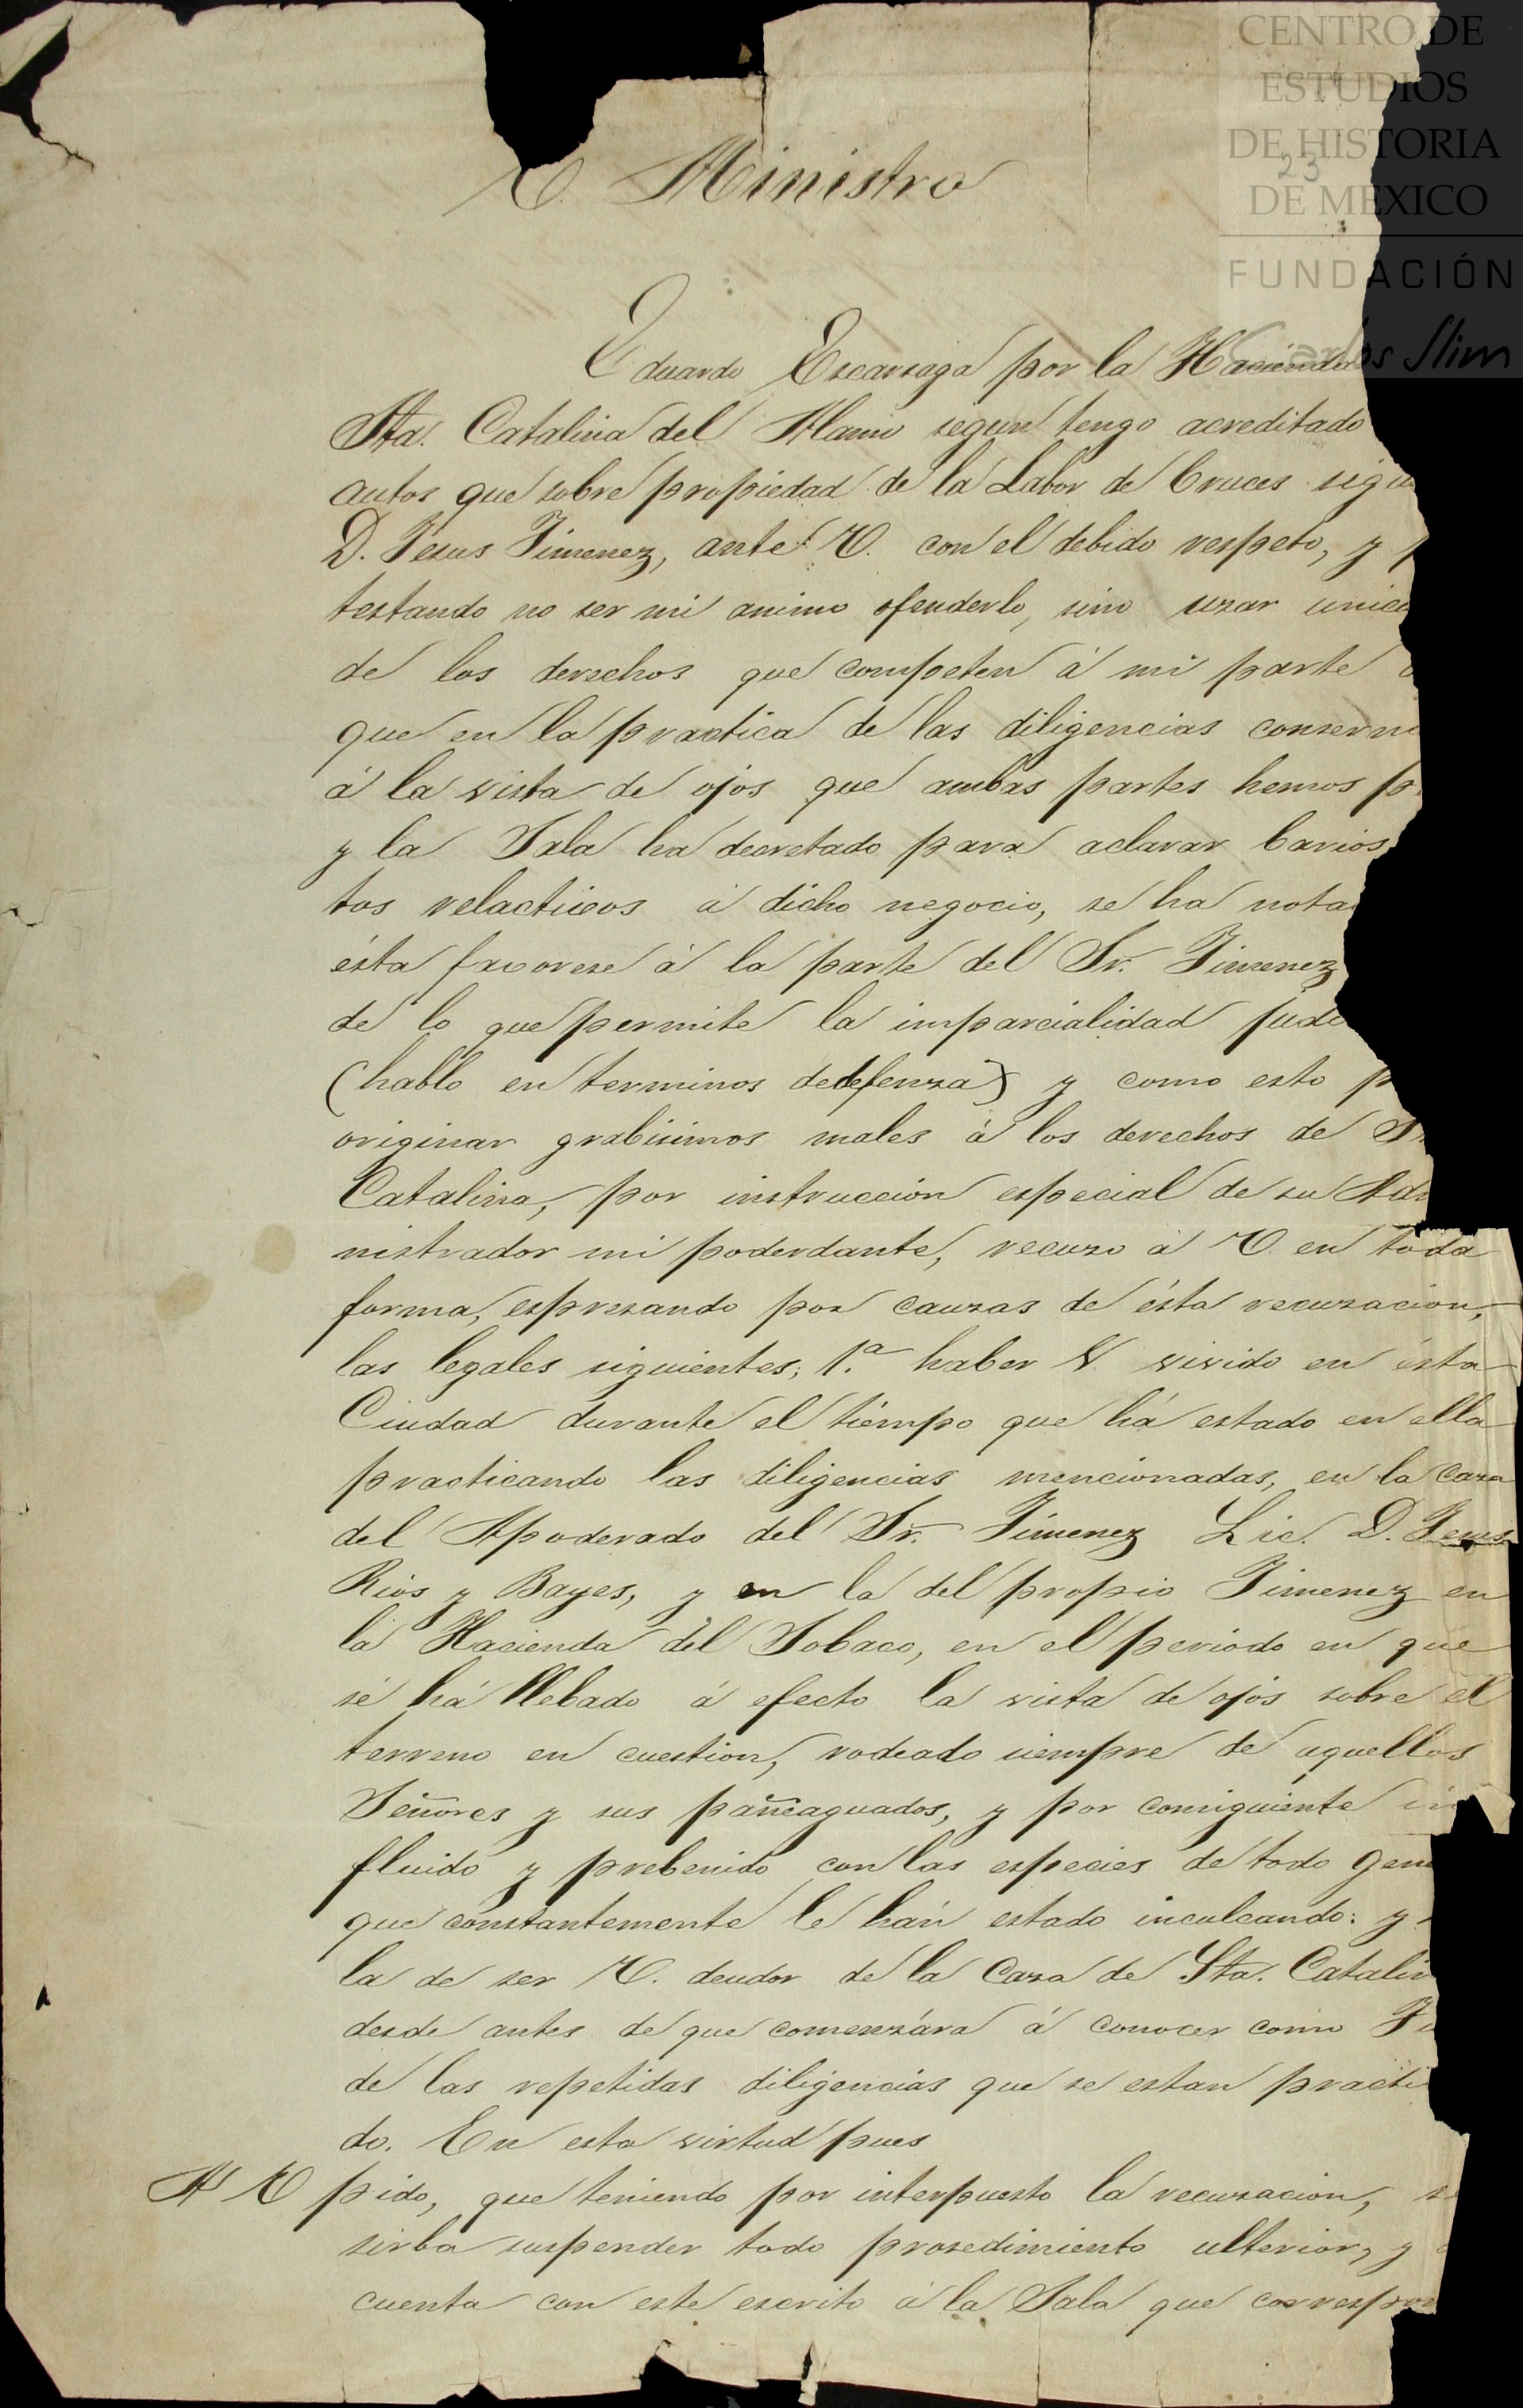 CENTRO DE
ESTUDIOS
DE HISTORIA
DE MEXICO
FUNDACIÓN
Carlos Slim
23
C. Ministro
Eduardo Escarsaga por la Hacienda
Sta. Catalina del Alamo segun tengo acreditado
autos que sobre propiedad de la Labor de Cruces sigu
D. Jesus Jimenez, ante V. con el debido respeto, y p
testando no ser mi animo ofenderlo, sino usar unica
de los derechos que competen á mi parte
que en la practica de las diligencias conserni
á la vista de ojos que ambas partes hemos p
y la Sala ha decretado para aclarar barios
tos relacticos á dicho negocio, se ha nota
ésta favorese á la parte del Sr. Jimenez
de lo que permite la imparcialidad judi
(hablo en terminos de defensa) y como esto p
originar grabisimos males á los derechos de St
Catalina, por instruccion especial de su Adm
nistrador mi poderdante, recuso á V. en toda
forma, espresando por causas de ésta recusacion,
las legales siguientes; 1.ª haber V. vivido en ésta
Ciudad durante el tiempo que há estado en ella
practicando las diligencias mencionadas, en la casa
del Apoderado del Sr. Jimenez Lic. D. Jesus
Rios y Bayes, y en la del propio Jimenez en
la Hacienda del Sobaco, en el periodo en que
sé há llebado á efecto la vista de ojos sobre el
terreno en cuestion, rodeado siempre de aquellos
Señores y sus pañeaguados, y por consiguiente in
fluido y prebenido con las especies de todo gene
que constantemente le hán estado inculcando: y
la de ser V. deudor de la Casa de Sta. Catalin
desde antes de que comenzára á conocer como Ju
de las repetidas diligencias que se estan practi
do. En esta virtud pues
A V pido, que teniendo por interpuesto la recusacion, se
sirba suspender todo prosedimiento ulterior, y
cuenta con este escrito á la Sala que correspon